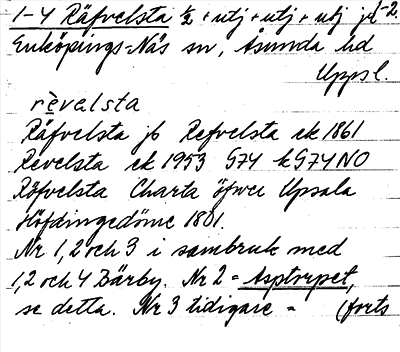 1-4 Räfvelsta ½ + utj + utj + utj jb 1-2.
Enköpings-Näs sn, Åsunda hd
Uppsl.
rèvelsta
Räfvelsta jb Refvelsta ek 1861
Revelsta ek 1953 G74 kG74NO
Räfvelsta Charta öfwer Upsala
Höfdingedöme 1801.
Nr 1, 2 och 3 i sambruk med
1, 2 och 4 Bärby. Nr 2 = Asptorpet,
se detta. Nr 3 tidigare = (forts